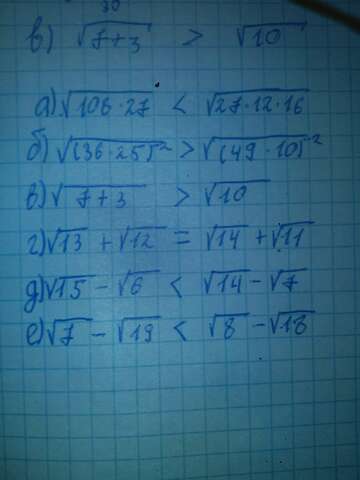 30
в) √7+3 > √10
а) √106·27 < √27·12·16
б) √(36·25)² > √(49·10)²
в) √7+3 > √10
г) √13 + √12 = √14 + √11
д) √15 - √6 < √14 - √7
е) √7 - √19 < √8 - √18